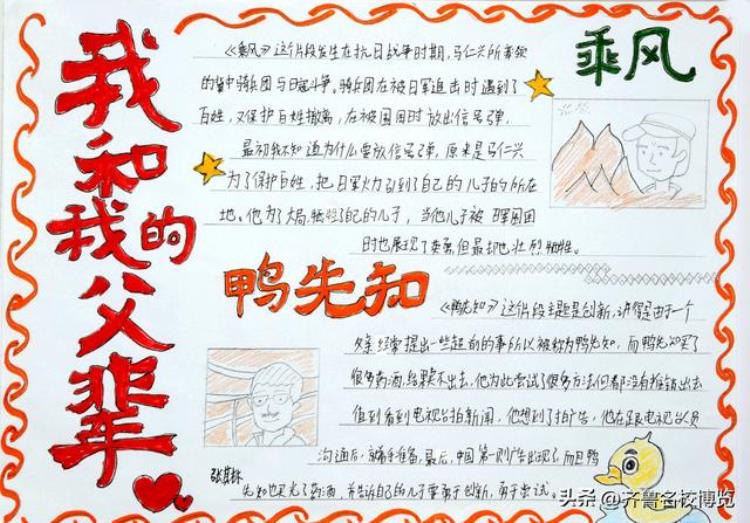 我和我的父辈
乘风
《乘风》这个片段发生在抗日战争时期,马仁兴所带领
的冀中骑兵团与日寇斗争。骑兵团在被日军追击时遇到了
百姓,又保护百姓撤离,在被围困时放出信号弹,
最初我不知道为什么要放信号弹,原来是马仁兴
为了保护百姓,把日军火力引到了自己的儿子的所在
地。他为了大局,牺牲了自己的儿子,当他儿子被 军围困
时也展现了英勇,但最却也壮烈牺牲。
鸭先知
《鸭先知》这个片段主题是创新,讲得是由于一个
经常提出一些超前的事所以被称为鸭先知,而鸭先知买了
很多药酒,结果卖不出去,他为此尝试了很多方法但都没有推销出去
值到看到电视台拍新闻,他想到了拍广告,他在跟电视台人员
沟通后,就着手准备,最后,中国第一则广告出现了,而且鸭
先知也卖光了药酒,并告诉自己的儿子要勇于创新,勇于尝试。
头条@齐鲁名校博览